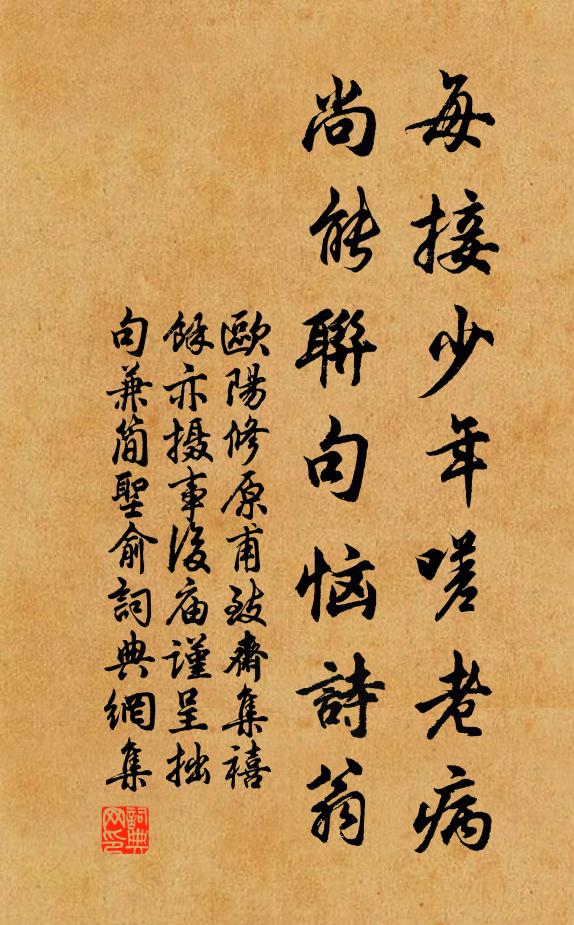 每接少年嗟老病
尚能聯句恼詩翁
歐陽修原甫致齋集禧
餘亦摄事後庙謹呈拙
句兼简聖俞詞典網集
詞典网印